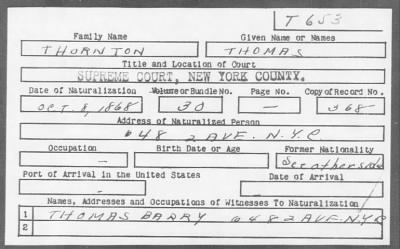 T 653
Family Name Given Name or Names
THORNTON THOMAS
Title and Location of Court
SUPREME COURT, NEW YORK COUNTY.
Date of Naturalization Volume or Bundle No. Page No. Copy of Record No.
OCT. 8, 1868 30 — 368
Address of Naturalized Person
648 2 AVE. N.Y.C
Occupation Birth Date or Age Former Nationality
— — See otherside
Port of Arrival in the United States Date of Arrival
- -
Names, Addresses and Occupations of Witnesses To Naturalization
1 THOMAS BARRY 648 2 AVE. NYC
2